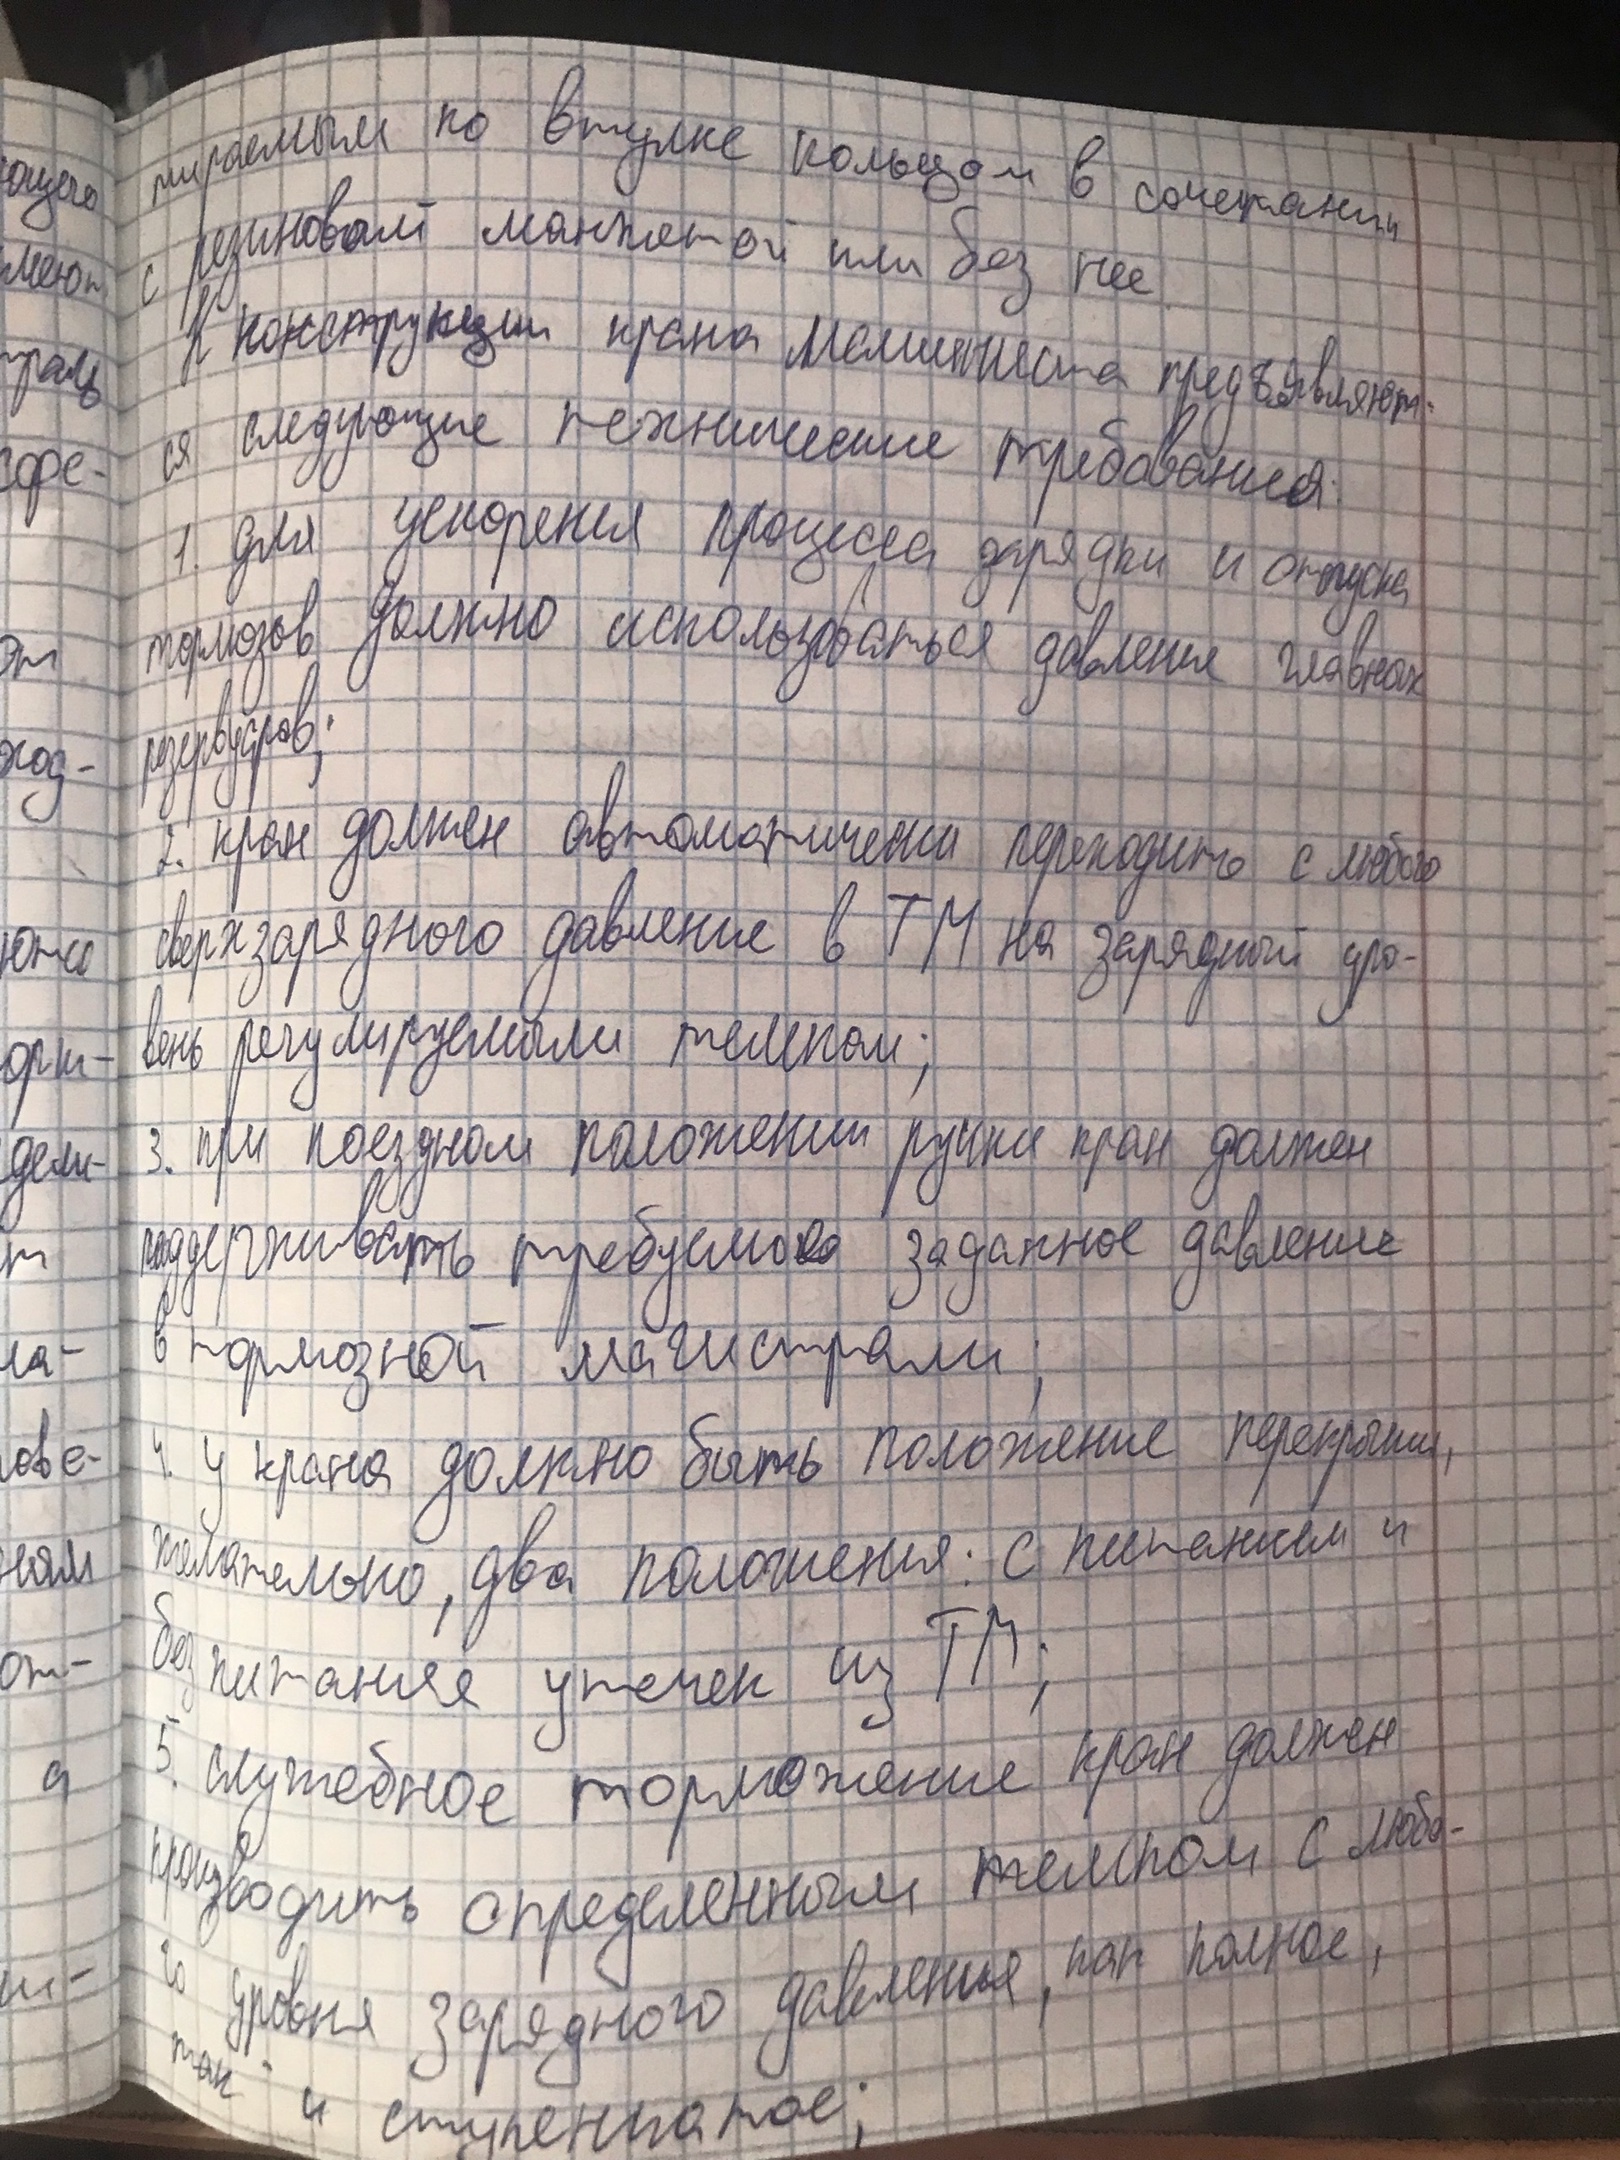 тираемым по втулке кольцом в сочетании
с резиновой манжетой или без нее.
К конструкции крана машиниста предъявляют-
ся следующие технические требования:
1. для ускорения процесса зарядки и отпуска
тормозов должно использоваться давление главных
резервуаров;
2. кран должен автоматически переходить с любого
сверхзарядного давление в ТМ на зарядный уро-
вень регулируемыли темпом;
3. при поездном положении ручки кран должен
поддерживать требуемое заданное давление
в тормозной магистрали;
4. у крана должно быть положение перекрыши,
желательно, два положения: с питанием и
без питания утечек из ТМ;
5. служебное торможение кран должен
производить определенным темпом с любо-
го уровня зарядного давления, как полное,
так и ступенчатое;
ющего
имеют
траль
сфе-
от
ход-
ются
орм-
дели-
т
ла-
лове-
ням
от-
а
ш-